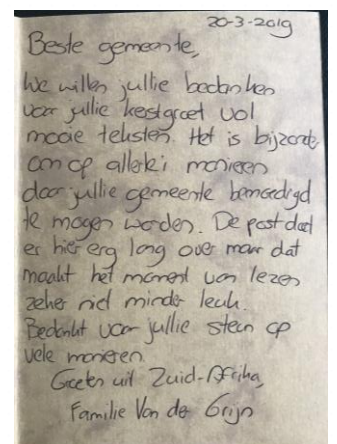 20-3-2019
Beste gemeente,
We willen jullie bedanken
voor jullie kestgroet vol
mooie teksten. Het is bijzonder
om op allerlei manieren
door jullie gemeente bemoedigd
te mogen worden. De post doet
er hier erg lang over maar dat
maakt het moment van lezen
zeker niet minder leuk.
Bedankt voor jullie steun op
vele manieren.
Groeten uit Zuid-Afrika,
Familie Van der Grijn